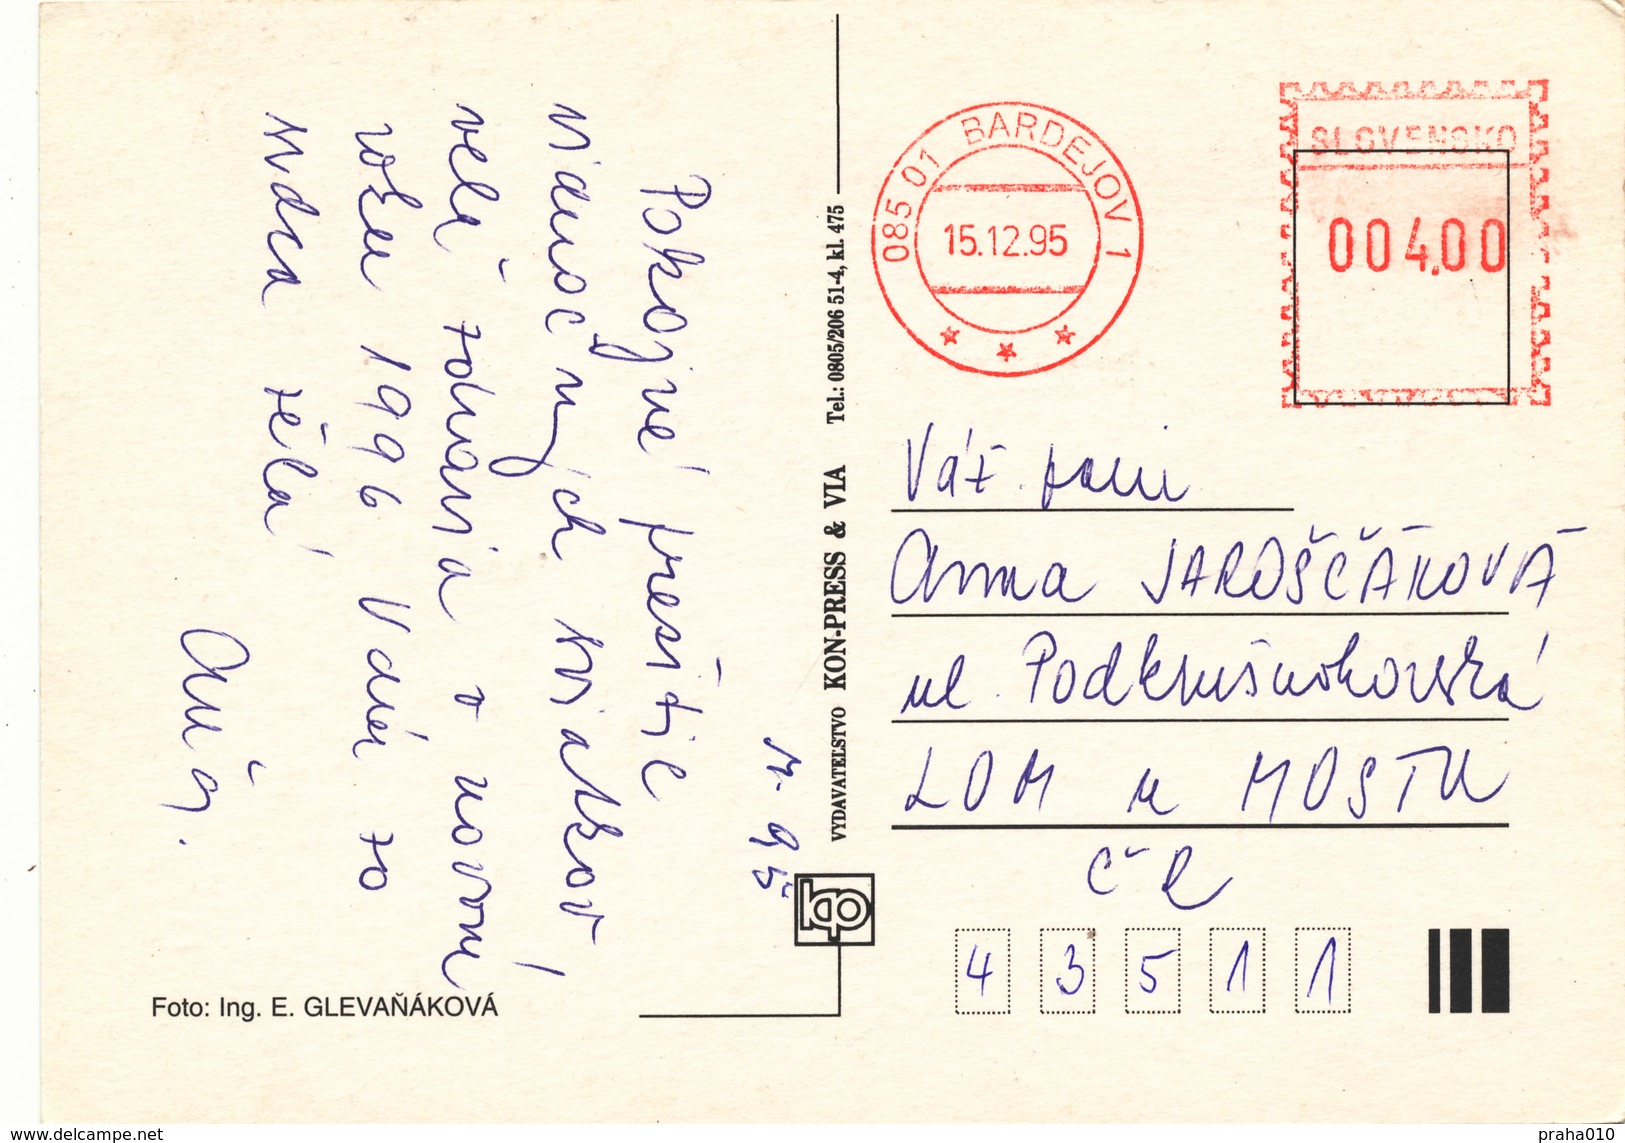 Pokojné prežitie
vianočných sviatkov,
veľa zdravia v novom
roku 1996 Vám zo
srdca želá
Anna.
Foto: Ing. E. GLEVAŇÁKOVÁ
VYDAVATEĽSTVO KON-PRESS & VIA Tel.: 0805/206 51-4, kl. 475
085 01 BARDEJOV 1
15.12.95
SLOVENSKO
004,00
Váž. pani
Anna JAROŠČÁKOVÁ
ul. Podkrušnohorská
LOM u MOSTU
ČR
4 3 5 1 1
www.delcampe.net
praha010